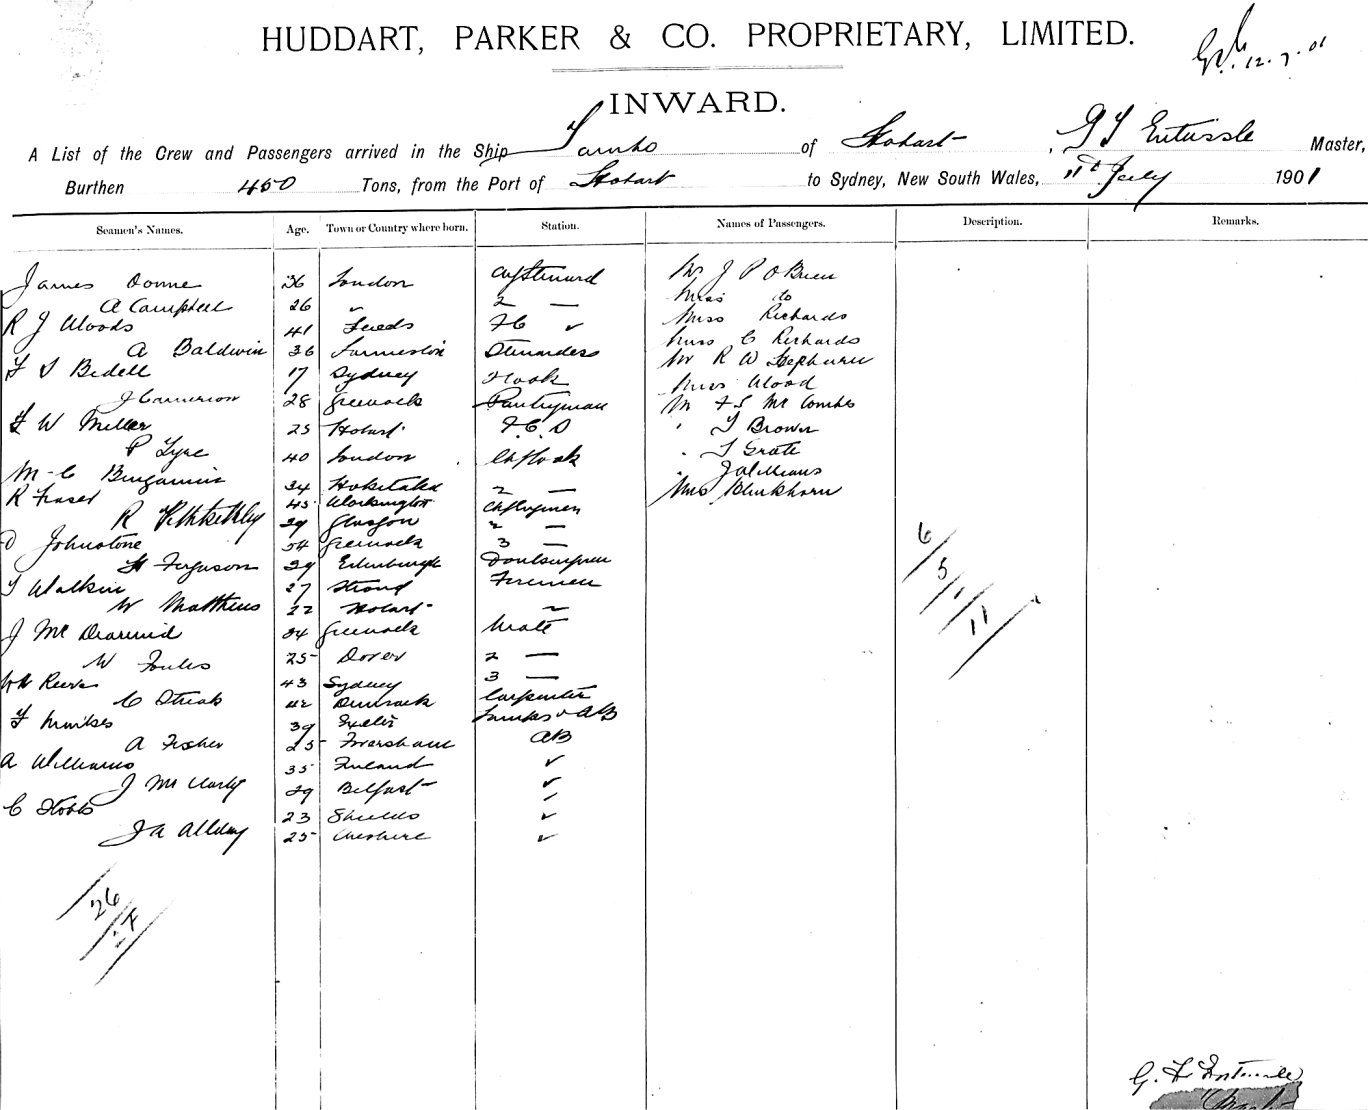 HUDDART, PARKER & CO. PROPRIETARY, LIMITED.
12.7.01
INWARD.
A List of the Crew and Passengers arrived in the Ship of Hobart, Master,
Burthen 450 Tons, from the Port of Hobart to Sydney, New South Wales, 11th July 1901
Seamen's Names. Age. Town or Country where born. Station. Names of Passengers. Description. Remarks.
James 36 London Mr J P O Brien
A Campbell 26 " 2 — Miss do
R J Woods 41 Leeds Miss Richards
A Baldwin 36 Stewardess Miss C Richards
F S Bedell 17 Sydney Mr R W Hepburn
J Cameron 28 Greenock Pantryman Miss Wood
F W Miller 25 Hobart M F S McCombs
P Tyre 40 London T Brown
M C Benjamin 34 2 — T Grate
R Fraser 45 Workington J Williams
R 29 Glasgow 2 — Mrs Blinkhorn
D Johnstone 34 Greenock 3 —
H Ferguson 29 Edinburgh
T Watkin 27 Stroud Firemen
W Matthews 22 Hobart
J Mc Diarmid 34 Greenock Mate
W Foulis 25 Dover 2 —
W H Reeve 43 Sydney 3 —
C Streak 42 Carpenter
F 39 Exeter Lamps & AB
A Fisher 25 Faversham AB
A Williams 35 Finland ✓
J Mc Clarty 29 Belfast ✓
C Hobbs 23 Shields ✓
J A Allday 25 Cheshire ✓
6/5/1/11
26
G. H. Entwisle